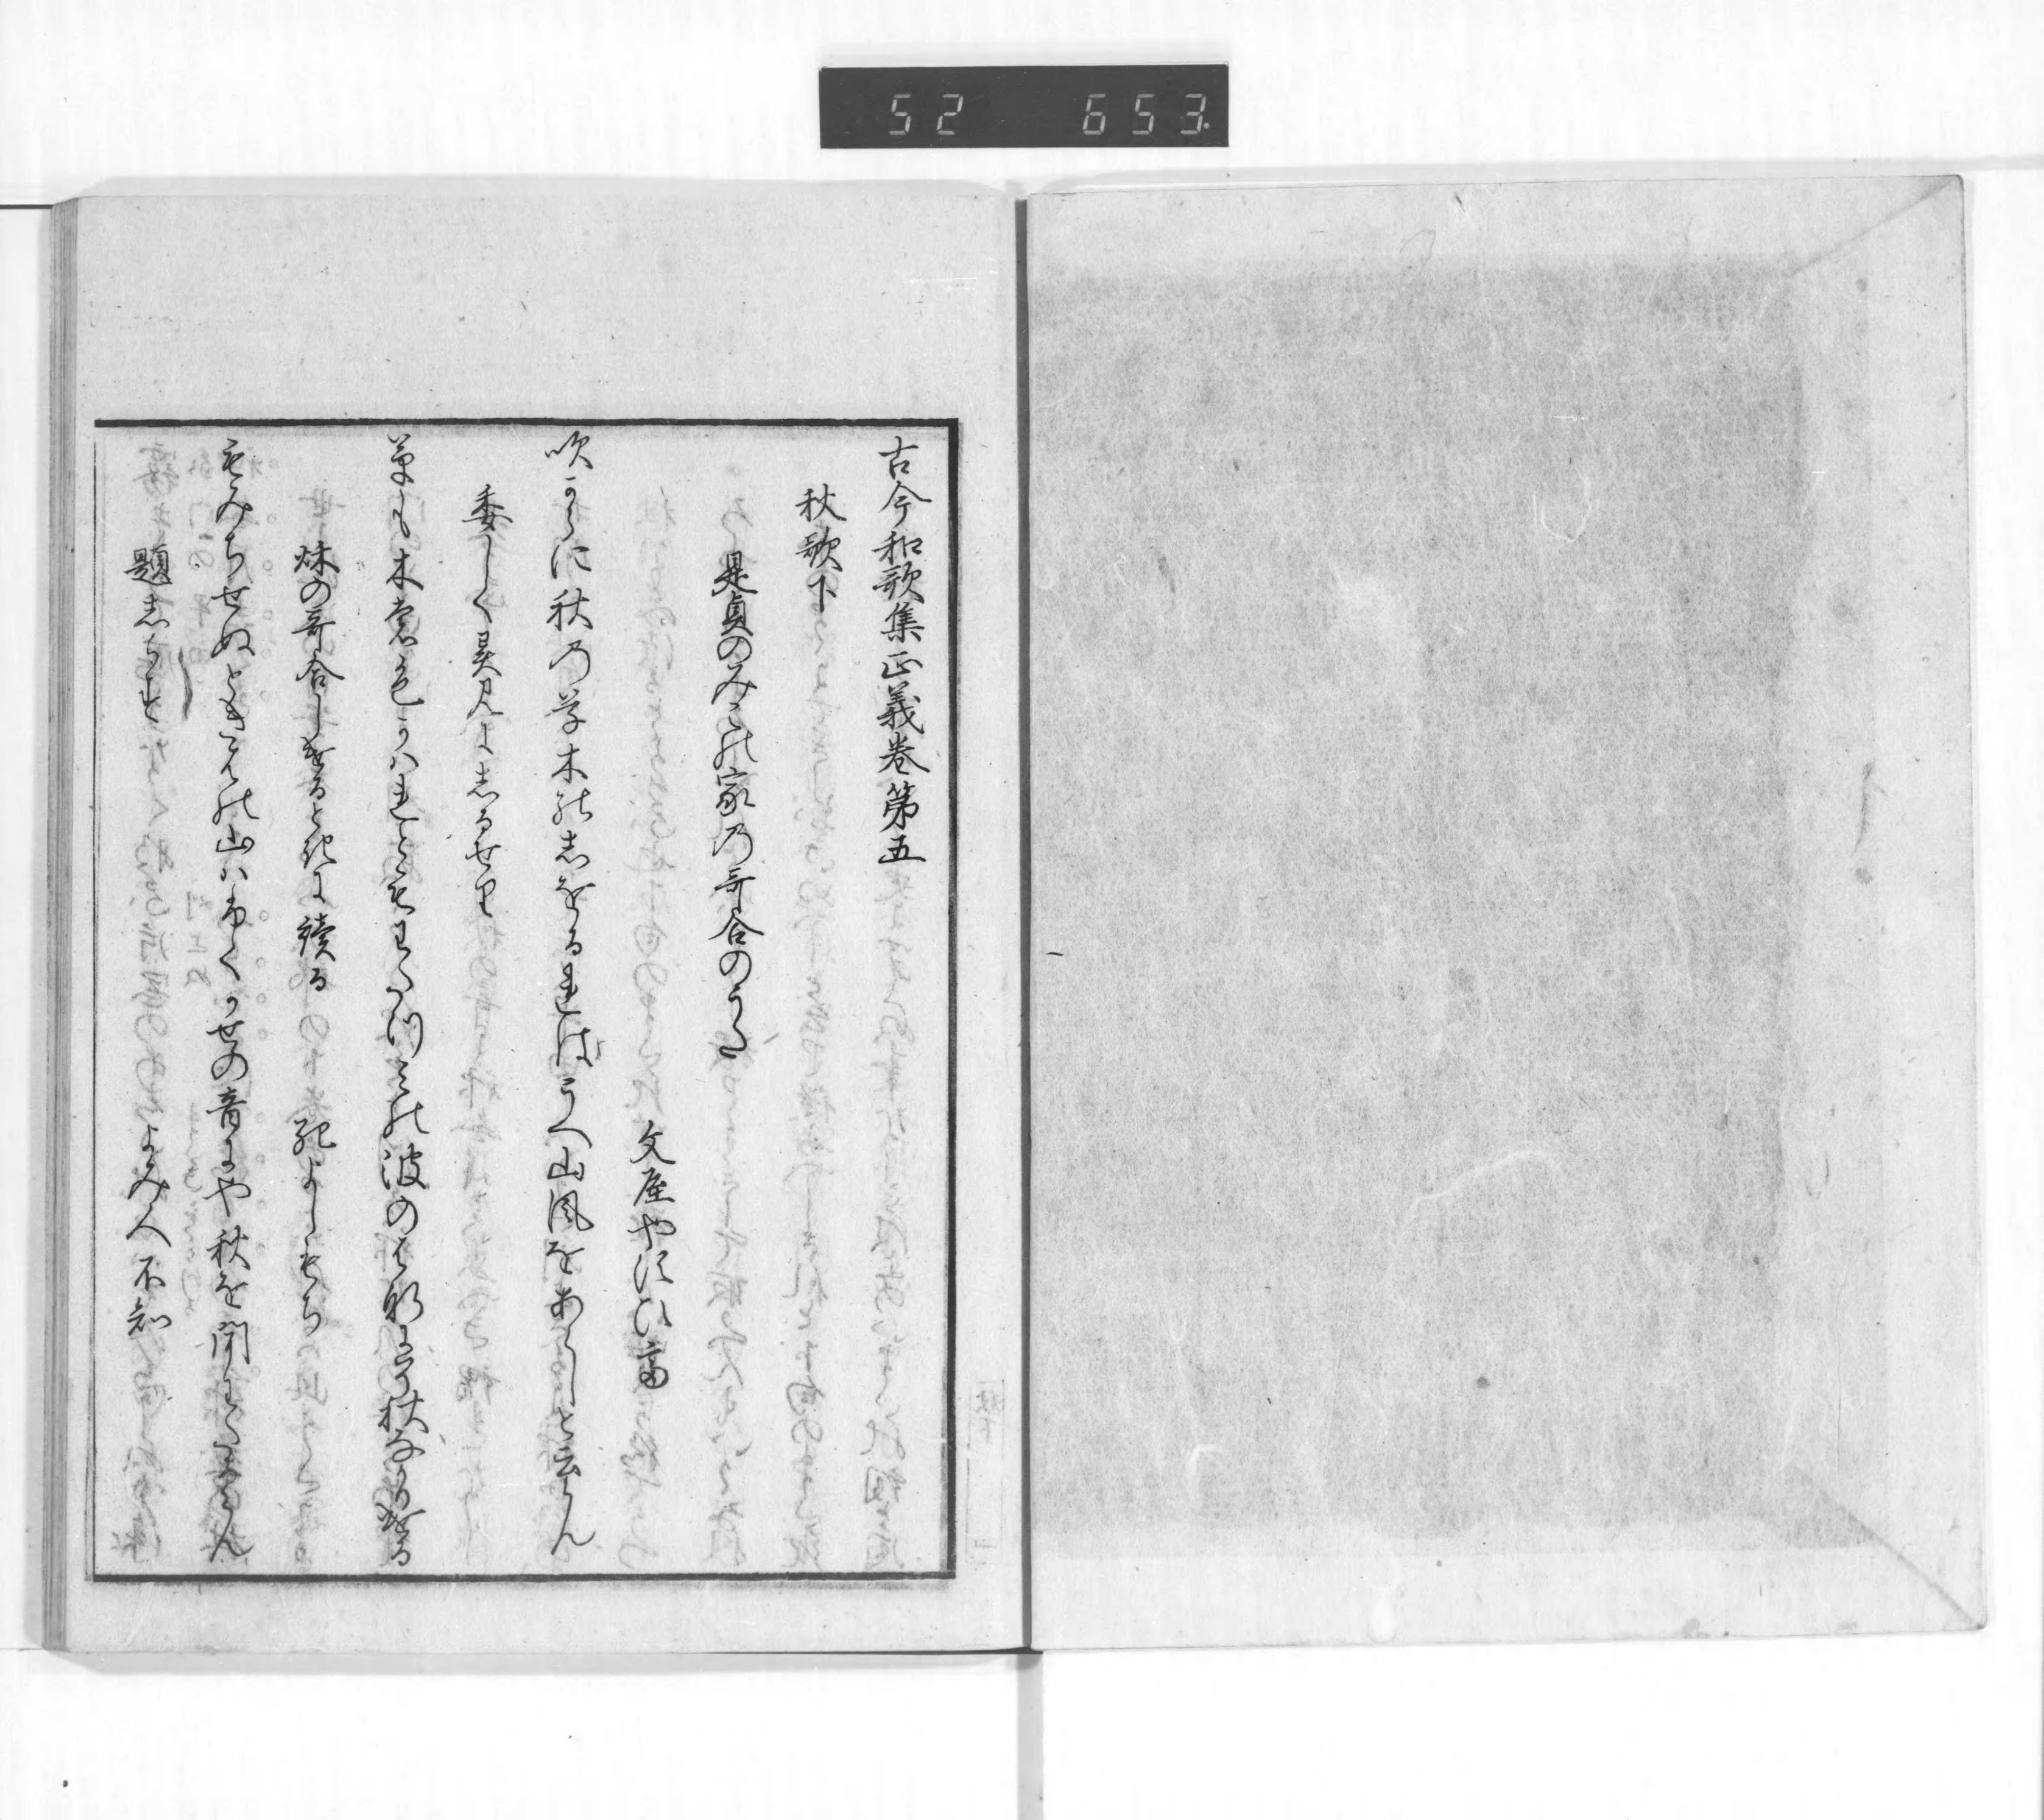 52 653
古今和歌集正義巻第五
秋歌下
是貞のみこの家の哥合のうた
文屋やすひて
吹からに秋の草木のしをるればうへ山風をあらしと云らん
委しく異見にしるせり
草も木も色かはれともわたつみの波の花にそ秋なかりける
秋の哥合しける時によめる
紀よしもち
もみちせぬときはの山は吹かせの音にや秋を聞わたるらん
題しらす
よみ人不知